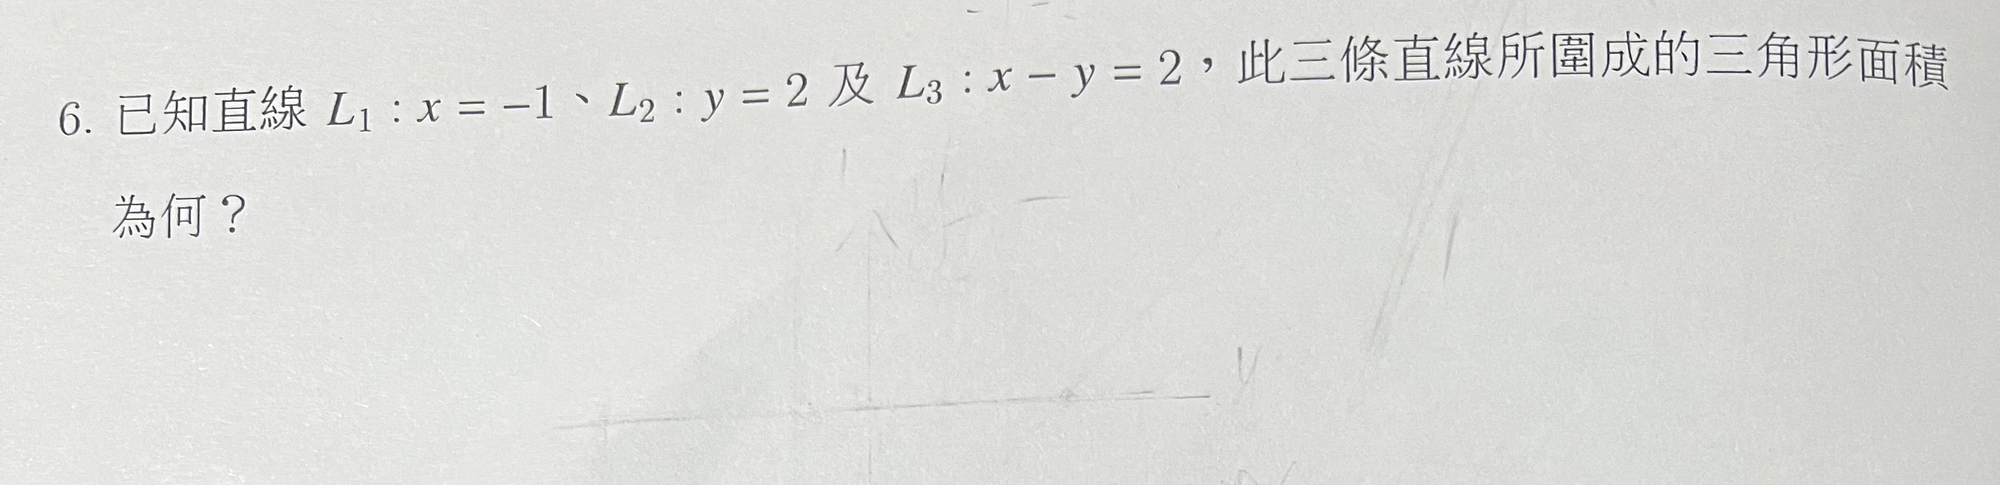 6. 已知直線 L₁ : x = −1、L₂ : y = 2 及 L₃ : x − y = 2，此三條直線所圍成的三角形面積
為何？